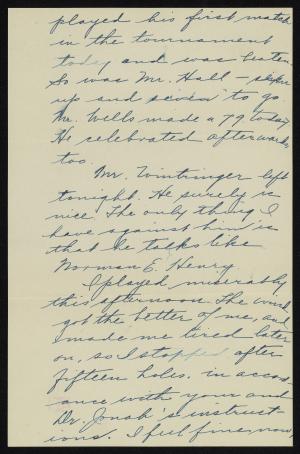 played his first match
in the tournament
today and was beaten.
So was Mr. Hall - seven
up and seven to go.
Mr. Wells made a 79 today.
He celebrated afterwards
too.
Mr. Wintringer left
tonight. He surely is
nice. The only thing I
have against him is
that he talks like
Norman E. Henry.
I played miserably
this afternoon. The wind
got the better of me, and
made me tired later
on, so I stopped after
fifteen holes. in accord-
ance with your and
Dr. Jonah's instruct-
ions. I feel fine, now,